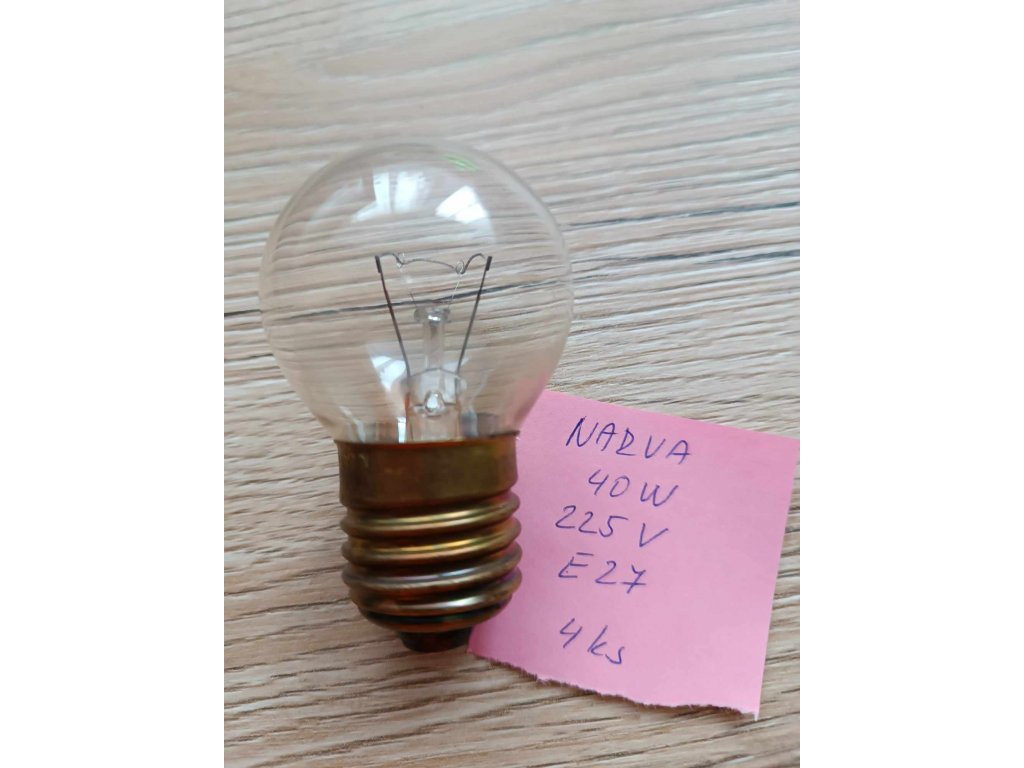 NARVA
40W
225V
E27
4ks